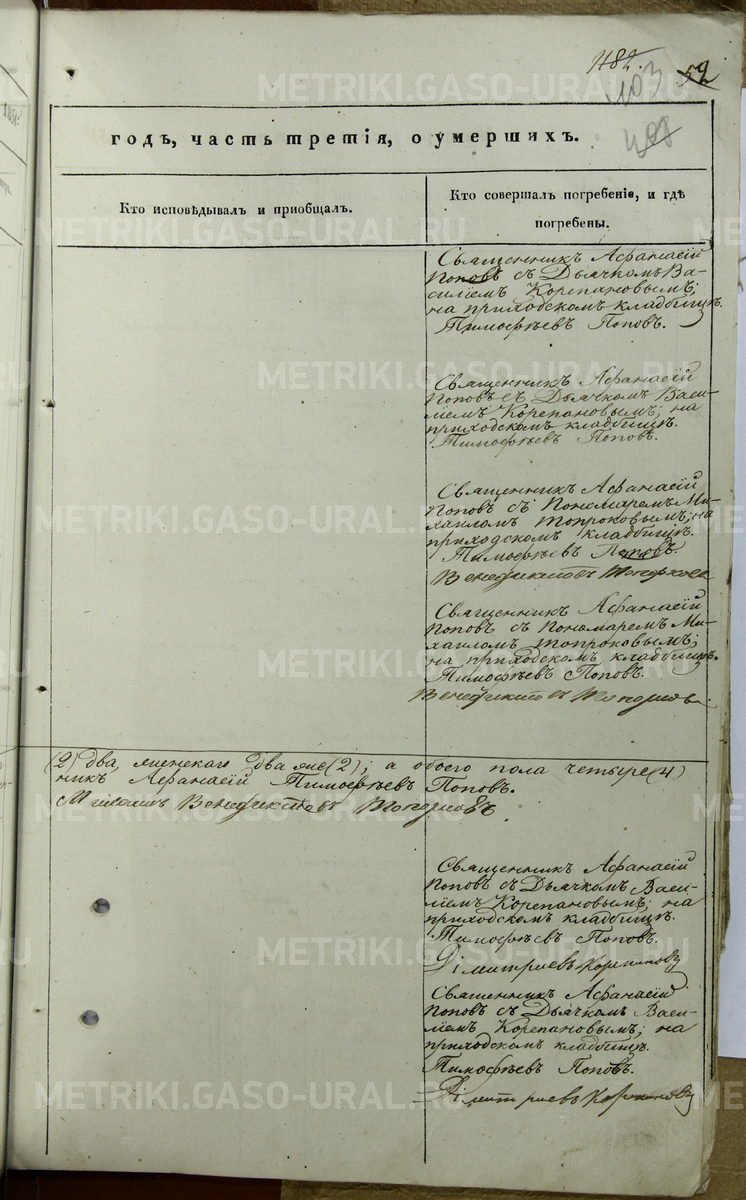 482.
52
103
METRIKI.GASO-URAL.RU
годъ, часть третія, о умершихъ.
Кто исповѣдывалъ и приобщалъ.
Кто совершалъ погребеніе, и гдѣ
погребены.
Священникъ Афанасій
Поповъ съ Дьячкомъ Ва-
силіемъ Корепановымъ;
на приходскомъ кладбищѣ.
Тимофѣевъ Поповъ.
Священникъ Афанасій
Поповъ съ Дьячкомъ Васи-
ліемъ Корепановымъ; на
приходскомъ кладбищѣ.
Тимофѣевъ Поповъ.
Священникъ Афанасій
Поповъ съ Пономаремъ Ми-
хаиломъ Топроковымъ; на
приходскомъ кладбищѣ.
Тимофѣевъ Поповъ.
Венедиктовъ
Священникъ Афанасій
Поповъ съ Пономаремъ Ми-
хаиломъ Топроковымъ;
на приходскомъ кладбищѣ.
Тимофѣевъ Поповъ.
Венедиктовъ
(2) два, женскаго два же (2); а обоего пола четыре (4)
никъ Афанасій Тимофѣевъ Поповъ.
Михаилъ Венедиктовъ
Священникъ Афанасій
Поповъ съ Дьячкомъ Васи-
ліемъ Корепановымъ; на
приходскомъ кладбищѣ.
Тимофѣевъ Поповъ.
Димитріевъ Корепановъ
Священникъ Афанасій
Поповъ съ Дьячкомъ Васи-
ліемъ Корепановымъ; на
приходскомъ кладбищѣ.
Тимофѣевъ Поповъ.
Димитріевъ Корепановъ